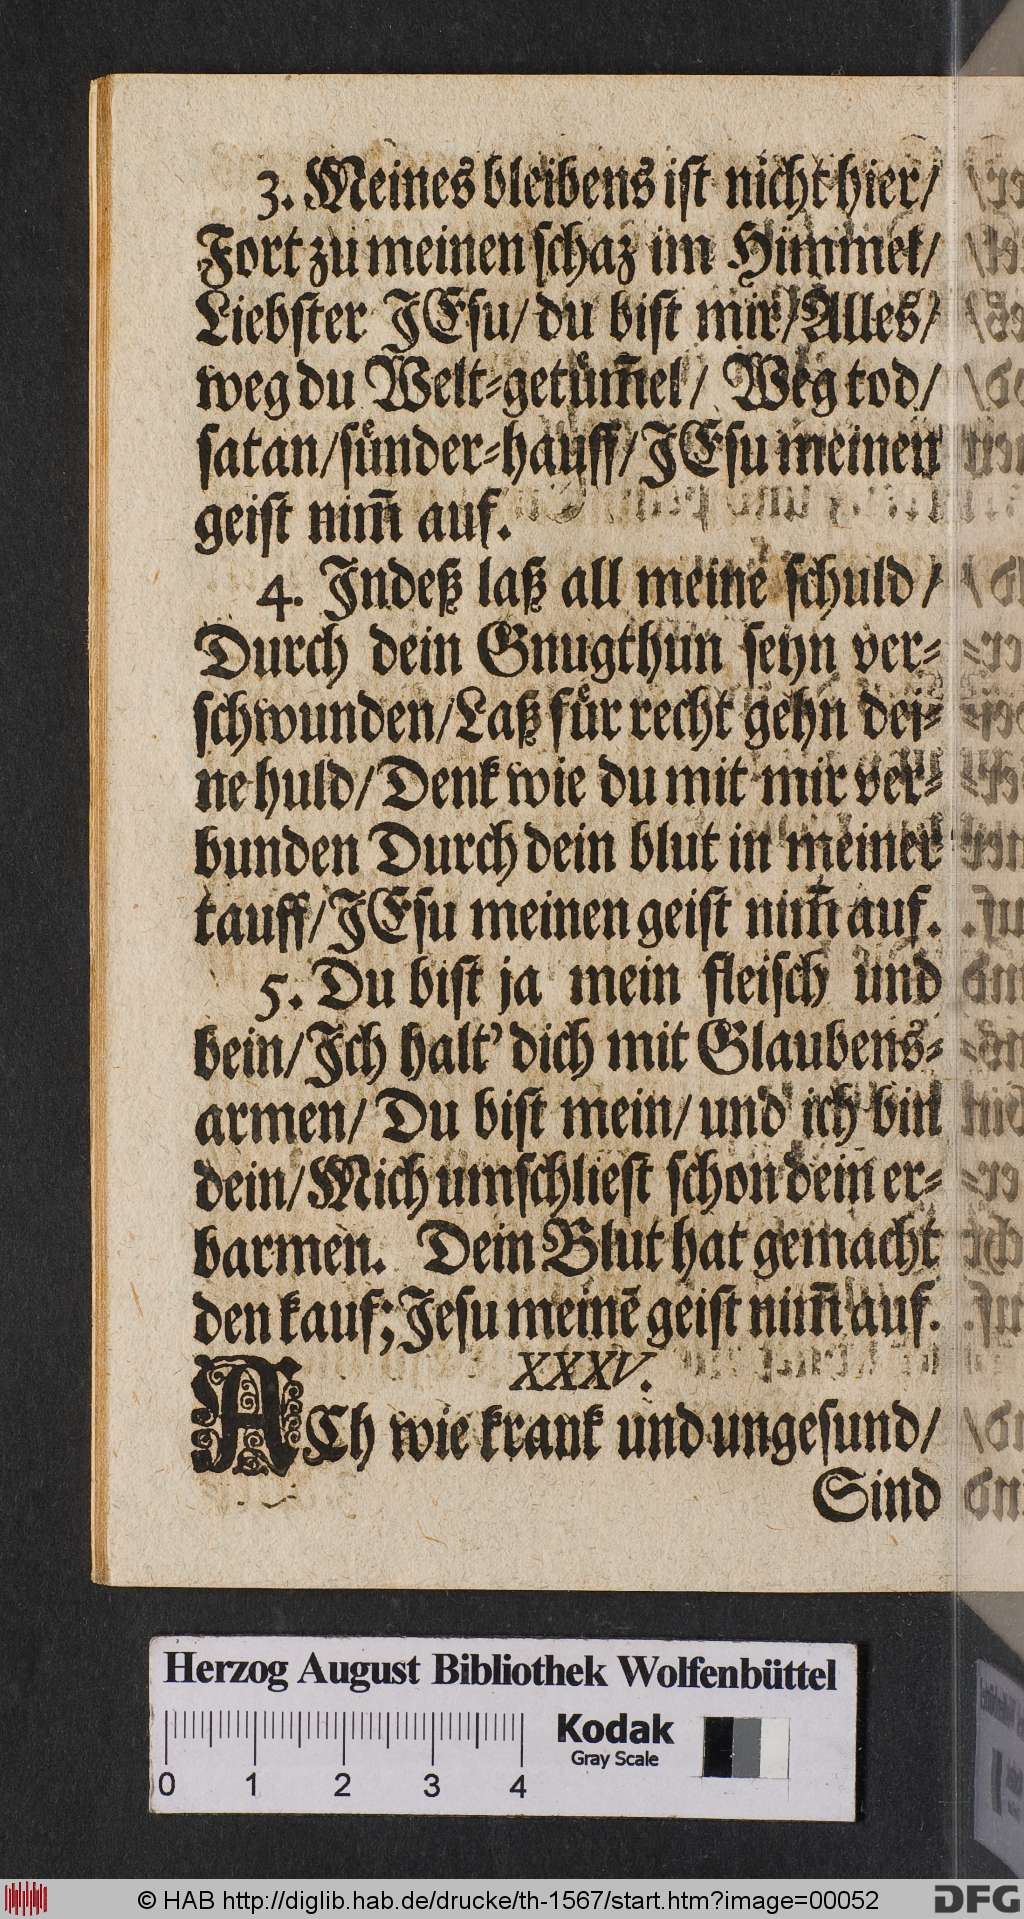 3. Meines bleibens ist nicht hier/
Fort zu meinen schaz im Himmel/
Liebster JEsu/ du bist mir/ Alles/
weg du Welt-getům̃el/ Weg tod/
satan/ sůnder-hauff/ JEsu meinen
geist nim̃ auf.
4. Indeß laß all meine schuld/
Durch dein Gnugthun seyn ver-
schwunden/ Laß fůr recht gehn dei-
ne huld/ Denk wie du mit mir ver-
bunden Durch dein blut in meiner
tauff/ JEsu meinen geist nim̃ auf.
5. Du bist ja mein fleisch und
bein/ Ich halt’ dich mit Glaubens-
armen/ Du bist mein/ und ich bin
dein/ Mich umschliest schon dein er-
barmen. Dein Blut hat gemacht
den kauf; Jesu meinē geist nim̃ auf.
XXXV.
ACh wie krank und ungesund/
Sind
Herzog August Bibliothek Wolfenbüttel
Kodak
Gray Scale
0 1 2 3 4
© HAB http://diglib.hab.de/drucke/th-1567/start.htm?image=00052
DFG